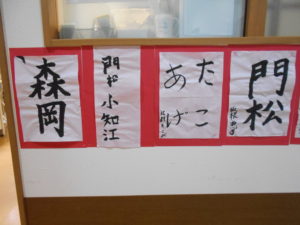 森岡
門松 小知江
たこ
あげ
門松